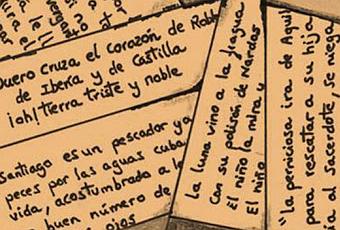 Duero cruza el corazón de Robl
de Iberia y de Castilla
¡oh! Tierra triste y noble
Santiago es un pescador ya
peces por las aguas cuba
vida, acostumbrado a l
buen número de
ojos
La luna vino a la fragua
Con su polisón de Nardos
El niño la mira y
El niño
"La perniciosa ira de Aqui
para rescatar a su hija
al Sacerdote, se niega